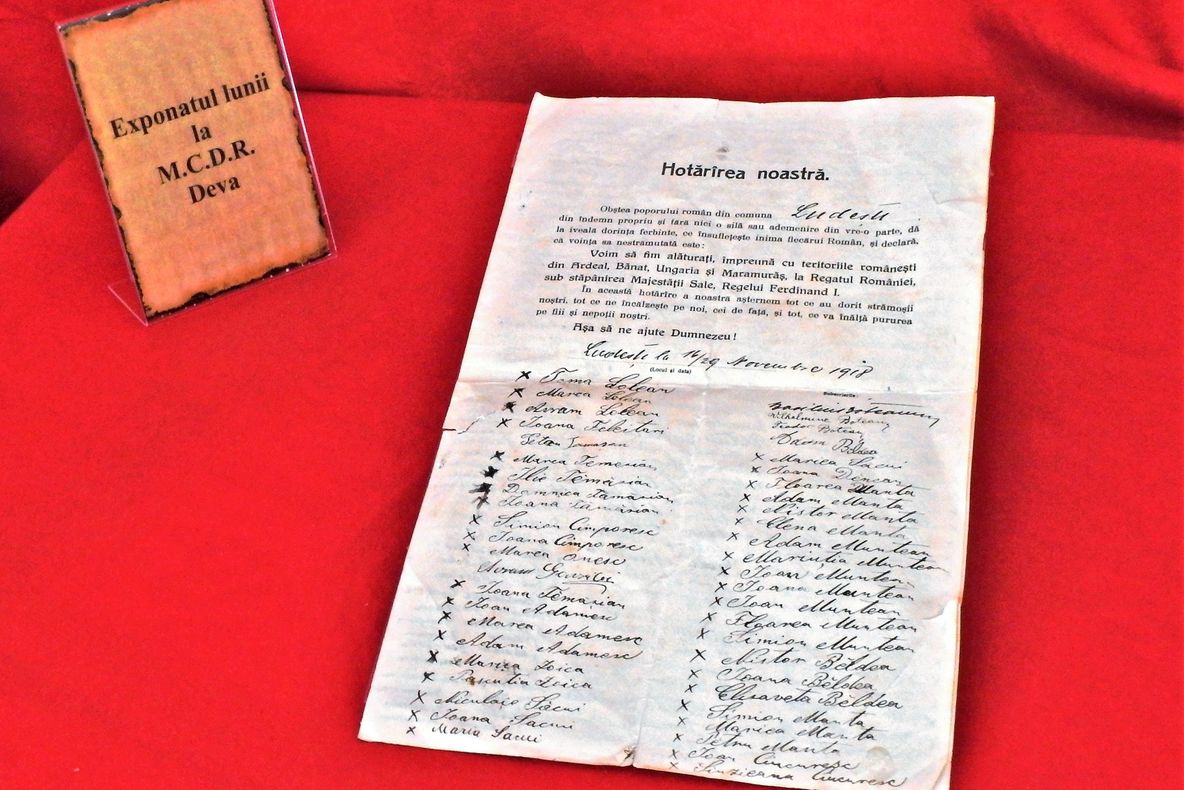 Exponatul lunii
la
M.C.D.R.
Deva
Hotărîrea noastră.
Obștea poporului român din comuna Ludești
din îndemn propriu și fără nici o silă sau ademenire din vre-o parte, dă
la iveală dorința ferbinte, ce însuflețește inima fiecărui Român, și declară,
că voința sa nestrămutată este:
Voim să fim alăturați, împreună cu teritoriile românești
din Ardeal, Bănat, Ungaria și Maramurăș, la Regatul României,
sub stăpânirea Majestății Sale, Regelui Ferdinand I.
În această hotărîre a noastră așternem tot ce au dorit strămoșii
noștri, tot ce ne încălzește pe noi, cei de față, și tot, ce va înălță pururea
pe fiii și nepoții noștri.
Așa să ne ajute Dumnezeu!
Ludești la 16/29 Novembre 1918
(Locul și data)
x Lolean
x Marea Lolean
x Avram Lolean
x Ioana
Petru
x Marea Temerian
x Ilie Temărian
x Domnica Tamărian
x Ioana Tămărian
x Simion Cimporesc
x Ioana Cimporesc
x Marea Onesc
Avram
x Ioana Temărian
x Ioan Adamesc
x Marea Adamesc
x Adam Adamesc
x Marița Loica
x Loica
x Niculaie Sacui
x Ioana Sacui
x Maria Sacui
Subscrierile:
Wilhelmine Boteanu
Teodor Botean
Bĕldea
x Marica Sacui
x Ioana Dincan
x Floarea Manta
x Adam Manta
x Nistor Manta
x Elena Manta
x Adam Muntean
x Mariuția Muntean
x Ioan Muntean
x Ioana Muntean
x Ioan Muntean
x Floarea Muntean
x Simion Muntean
x Nistor Bĕldea
x Ioana Bĕldea
x Elisaveta Bĕldea
x Simion Manta
x Marica Manta
x Petru Manta
x Ioan Ciucuresc
x Sinzieana Ciucuresc